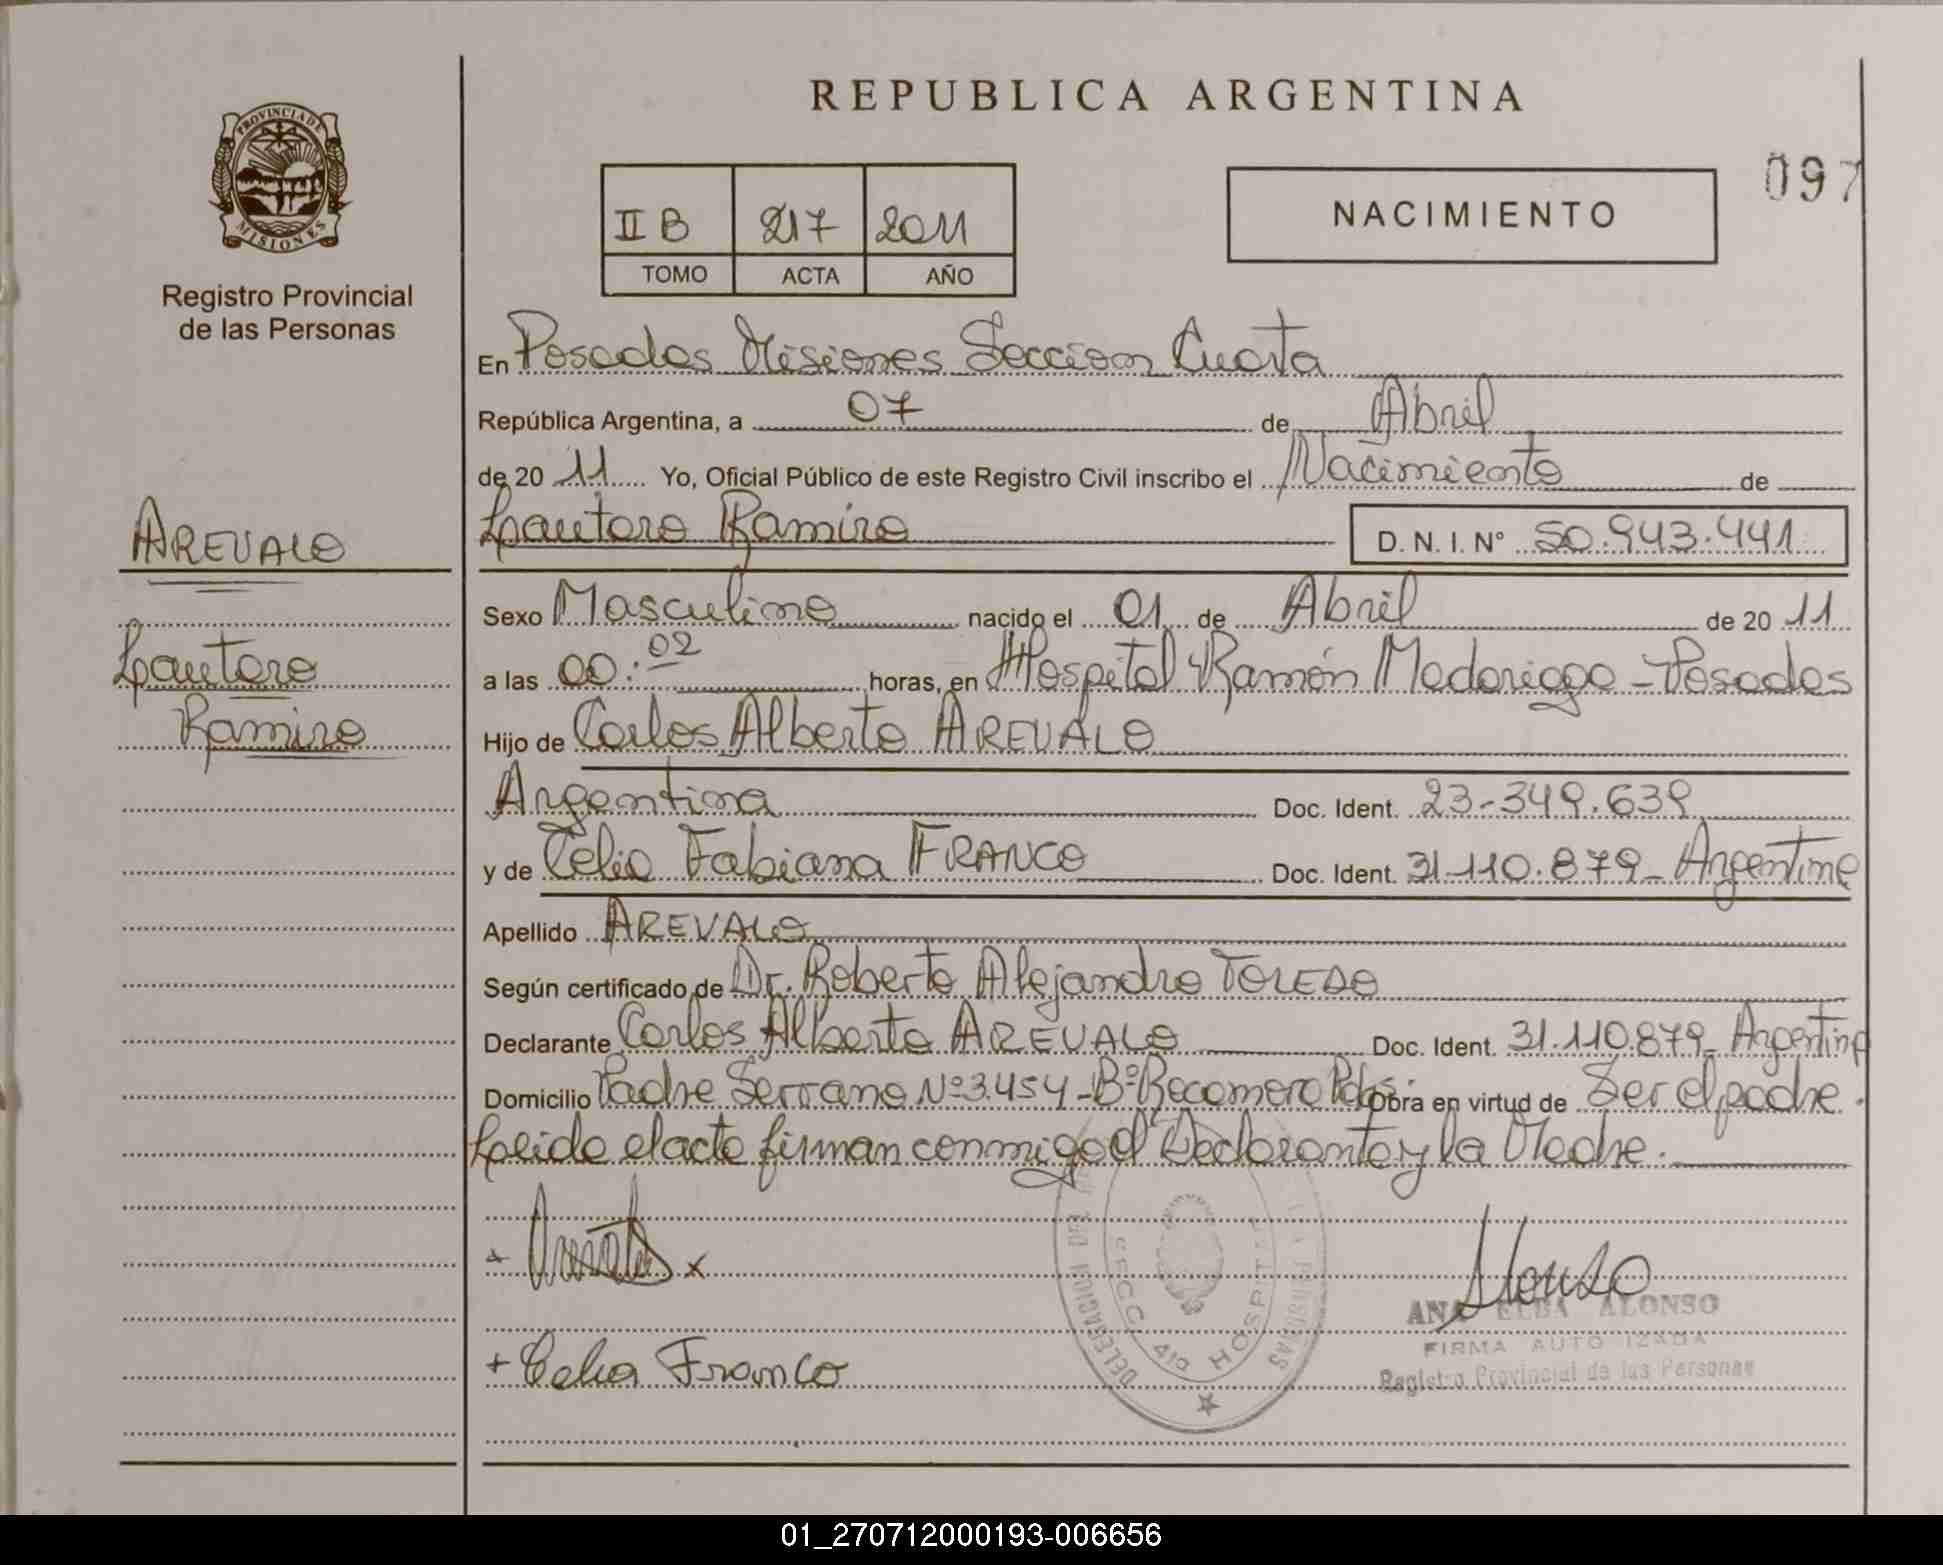 REPUBLICA ARGENTINA
PROVINCIA DE
MISIONES
Registro Provincial
de las Personas
II B 217 2011
TOMO ACTA AÑO
NACIMIENTO
097
En Posadas Misiones Seccion Cuarta
República Argentina, a 07 de Abril
de 20 11 Yo, Oficial Público de este Registro Civil inscribo el Nacimiento de
Lautaro Ramiro D. N. I. N° 50.943.441
AREVALO
Lautaro
Ramiro
Sexo Masculino nacido el 01 de Abril de 20 11
a las 00:02 horas, en Hospital Ramón Madariaga - Posadas
Hijo de Carlos Alberto AREVALO
Argentina Doc. Ident. 23-349.639
y de Celia Fabiana FRANCO Doc. Ident. 31.110.879 - Argentina
Apellido AREVALO
Según certificado de Dr. Roberto Alejandro TOLEDO
Declarante Carlos Alberto AREVALO Doc. Ident. 31.110.879 - Argentina
Domicilio Padre Serrano Nº 3.454 - Bº Rocamora Pdas. Obra en virtud de Ser el padre.
Leida el acta firman conmigo el Declarante y la Madre.
Alonso
ANA ELBA ALONSO
FIRMA AUTORIZADA
Registro Provincial de las Personas
+ Celia Franco
DELEGACION
SECC. 4ta HOSPITAL
PERSONAS
01_270712000193-006656